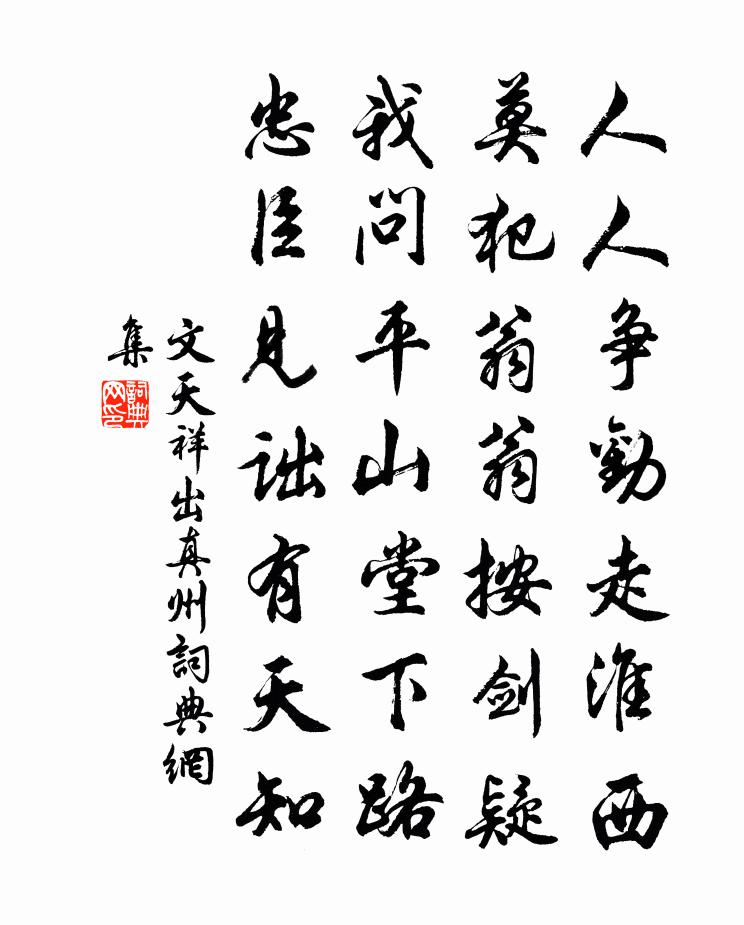 人人争勸走淮西
莫犯翁翁按剑疑
我问平山堂下路
忠臣見詘有天知
文天祥出真州詞典網
集
詞典
网印